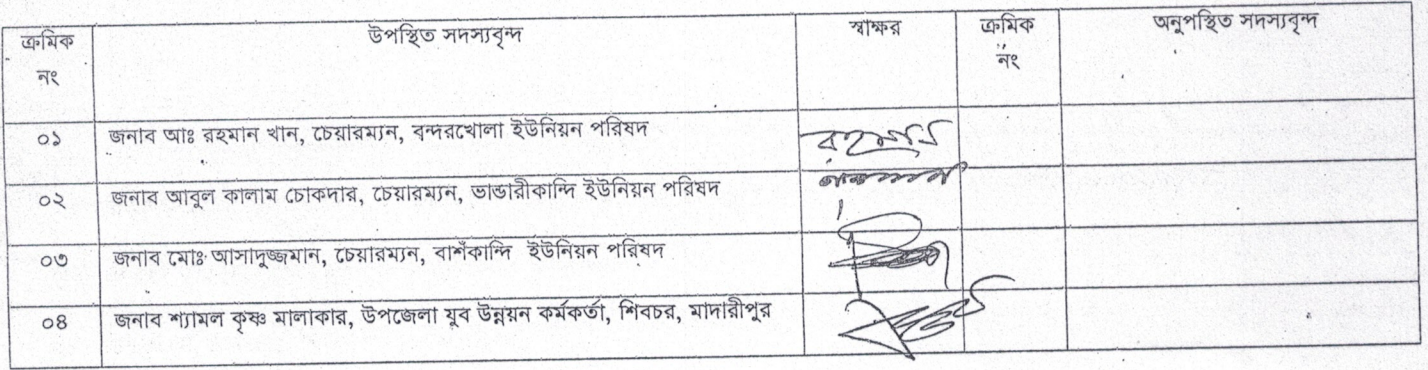 ক্রমিক নং উপস্থিত সদস্যবৃন্দ স্বাক্ষর ক্রমিক নং অনুপস্থিত সদস্যবৃন্দ
০১ জনাব আঃ রহমান খান, চেয়ারম্যান, বন্দরখোলা ইউনিয়ন পরিষদ
০২ জনাব আবুল কালাম চোকদার, চেয়ারম্যান, ভান্ডারীকান্দি ইউনিয়ন পরিষদ
০৩ জনাব মোঃ আসাদুজ্জমান, চেয়ারম্যান, বাশঁকান্দি ইউনিয়ন পরিষদ
০৪ জনাব শ্যামল কৃষ্ণ মালাকার, উপজেলা যুব উন্নয়ন কর্মকর্তা, শিবচর, মাদারীপুর